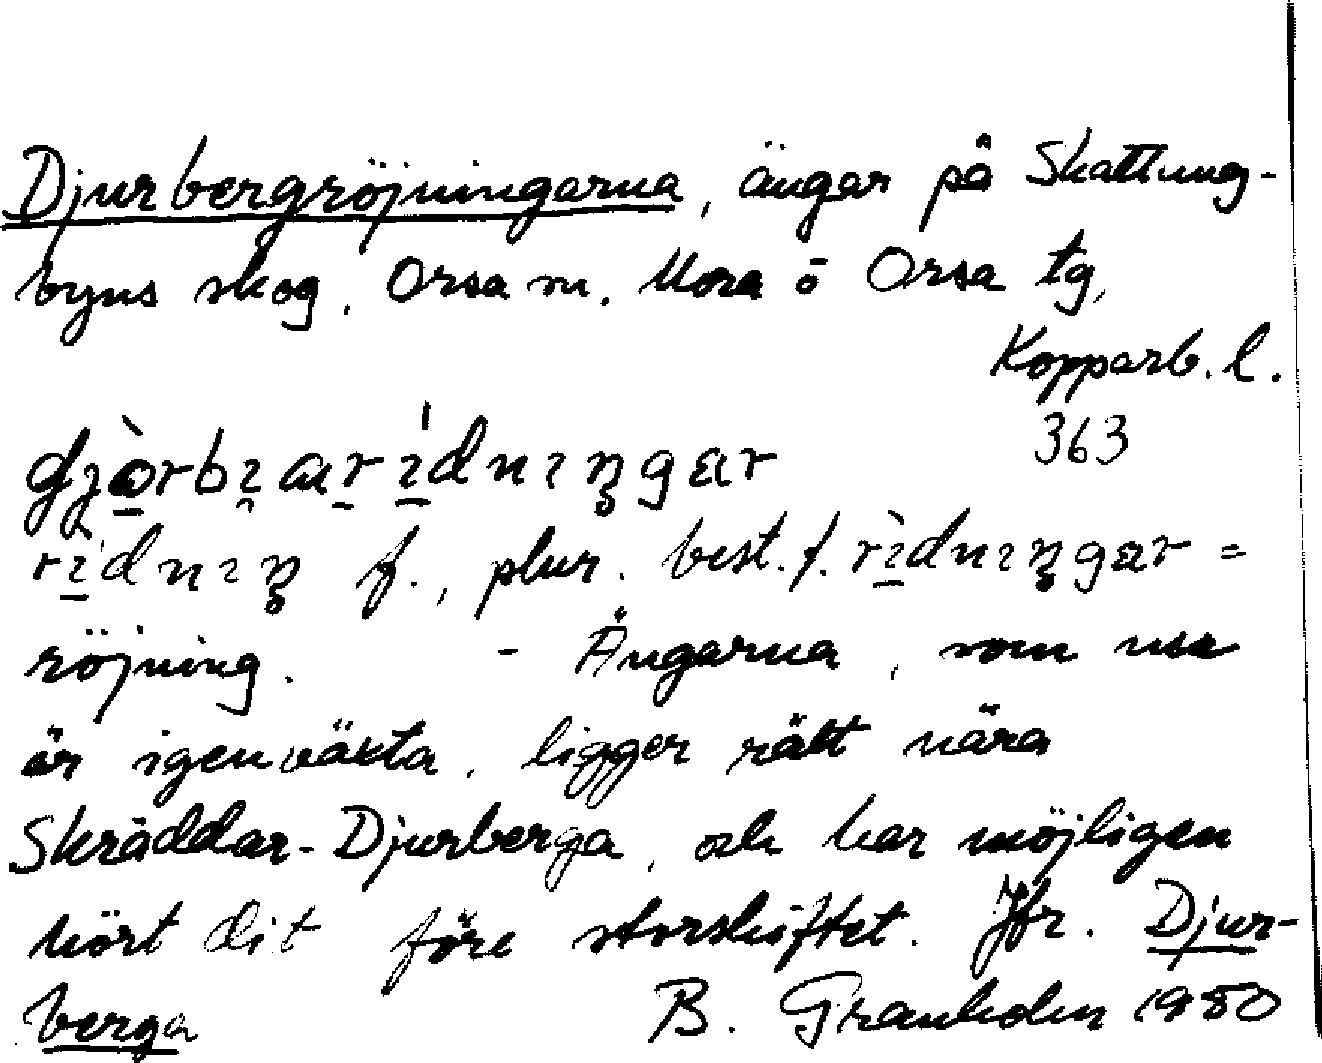 Djurbergröjningarna, ängar på Skattung-
byns skog, Orsa sn. Mora o Orsa tg,
Kopparb. l.
363
f., plur. best. f. =
röjning. - Ängarna, som nu
är igenväxta, ligger rätt nära
Skräddar-Djurberga, och har möjligen
hört dit före storskiftet. Jfr. Djur-
berga B. Granholm 1980